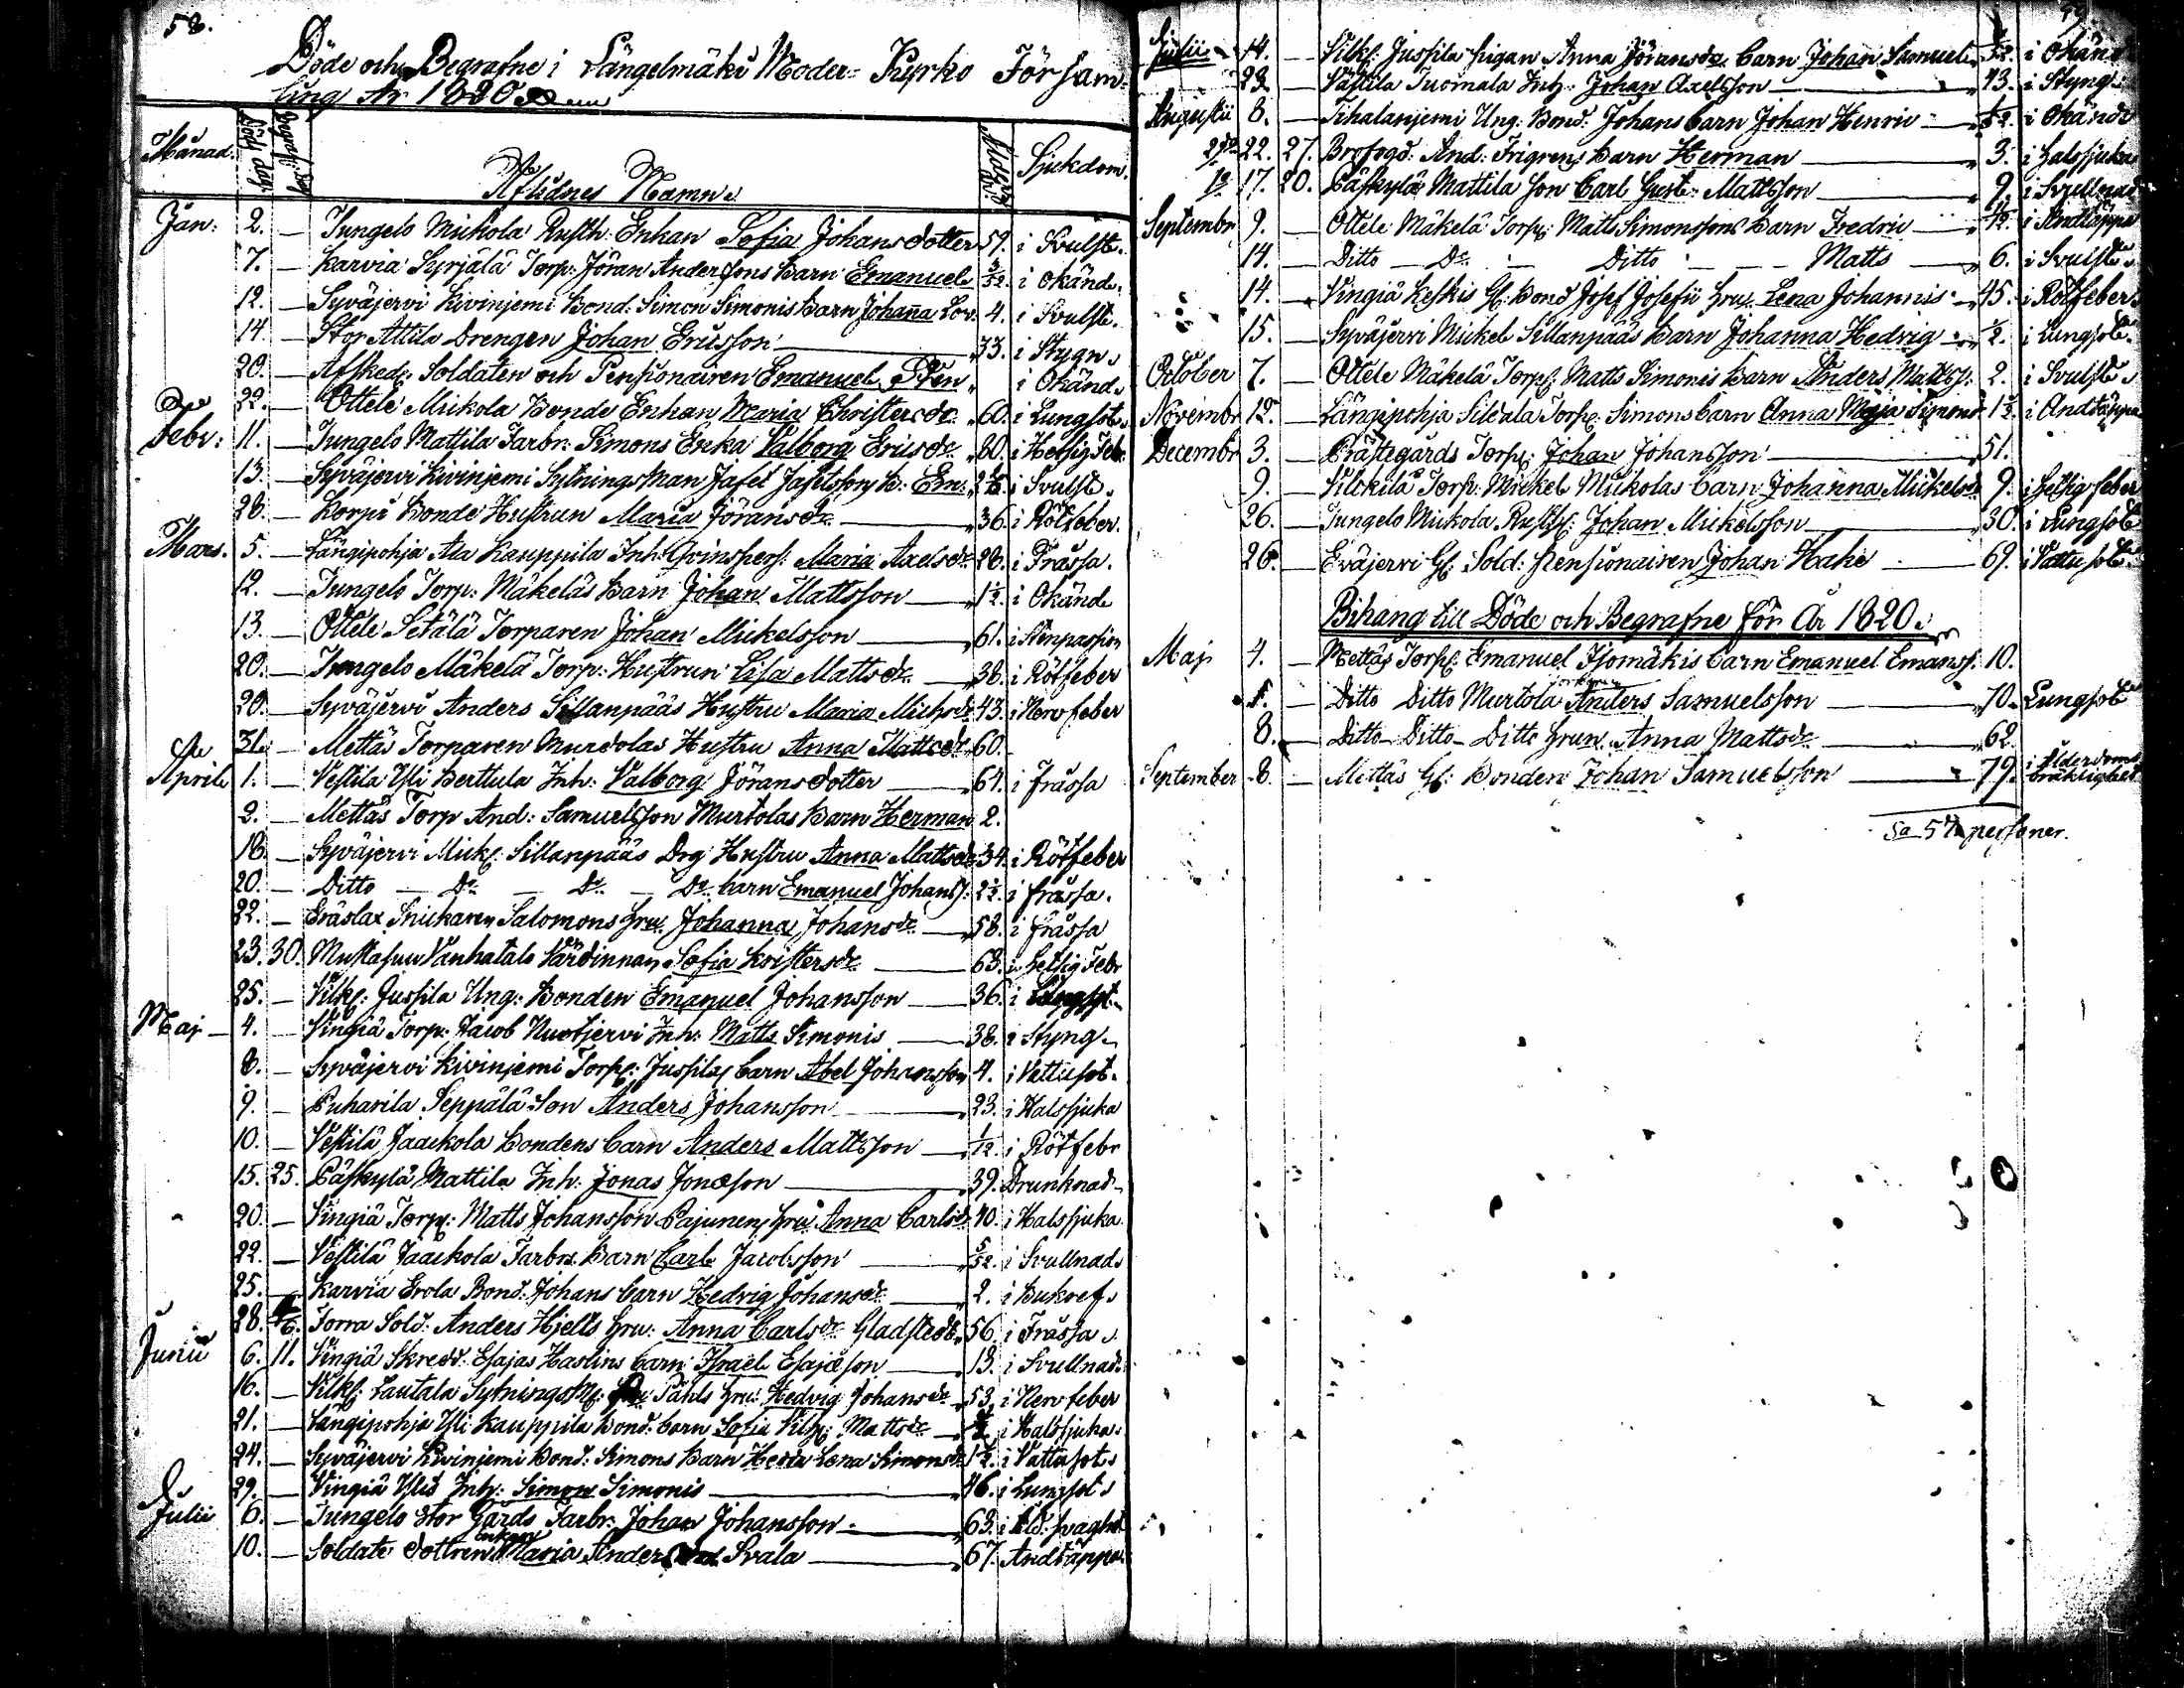 58.
Döde och Begrafne i Längelmäki Moder= Kyrko Försam=
ling År 1820
Månad. Död dag. Begrafn: dag Aflidnes Namn. Ålder År. Sjukdom.
Jan: 2. — Jungelo Mickola Rusth: Enkan Sofia Johansdotter 59. i Svulst.
7. — Karvia Syrjälä Torp: Jöran Anderssons Barn Emanuel 3/52 i Okänd.
12. — Syväjervi Kivinjemi Bond: Simon Simonis Barn Johanna Lov: 4. i Svulst.
14 — Stor Attila Drengen Johan Ericsson 33. i Stygn
20. — Afsked: Soldaten och Pensionairen Emanuel i Okänd.
22. — Ottele Mickola Bonde Enkan Maria Christersdr 60. i Lungsot
Febr: 11. — Jungelo Mattila Farbr: Simons Enka Valborg Ericsdr 80. i Hetsig Febr
13. — Syväjervi Kivinjemi Sytningsman Jafet Jafetssons b: Em: i Svulst.
26. — Korpi Bonde Hustrun Maria Jöransdr 36 i Rötfeber.
Mars. 5. — Längipohja Ala Kauppila Inh: Maria Axelsdr 28. i Frässa.
12. — Jungelo Torp: Mäkeläs Barn Johan Mattsson 1½. i Okänd
13. — Ottele Setälä Torparen Johan Mickelsson 61. i Stenpassion
20. — Jungelo Mäkelä Torp: Hustrun Lisa Mattsdr 38. i Rötfeber
20. — Syväjervi Anders Sillanpääs Hustru Maria Michsdr 43. i Nervfeber
31. — Mettäs Torparen Murdolas Hustru Anna Mattsdr 60.
Aprill 1. — Vestila Yli Berttula Inh: Valborg Jöransdotter 64. i Frässa
2. — Mettäs Torp And: Samuelsson Murtolas Barn Herman 2.
18. — Syväjervi Mick: Sillanpääs Drg: Hustru Anna Mattsdr 34. i Rötfeber
20. — Ditto — Dr — Dr — Dr barn Emanuel Johanss: 2½. i frässa.
22. — Eräslax Snickaren Salomons hru Johanna Johansdr 58. i frässa
23. 30. Mustasuu Vanhatalo Värdinnan Sofia Kristersdr 63. i Hetsig Febr
25. — Vilk: Jussila Ung: Bonden Emanuel Johansson 36. i Lungsot
Maj — 4. — Vingiä Torp: Jacob Inh: Matts Simonis 38. i Styng
8. — Syväjervi Kivinjemi Torp: Jussilas barn Abel Johansson 4. i Vattusot.
9. — Puharila Seppälä Son Anders Johansson 23. i Halssjuka
10. — Vestilä Jaackola Bondens barn Anders Mattsson 1/12. i Rötfebr
15. 25. Päskylä Mattila Inh: Jonas Jonæson 39. Drunknad
20. — Vingiä Torp: Matts Johansson Pajunen hru Anna Carlsdr 40. i Halssjuka.
22. — Vestilä Jaackola Farbrs Barn Carl Jacobsson 5/52. i Svullnad
25. — Karvia Erola Bond: Johans barn Hedvig Johansdr 2. i Bukref
28. Torra Sold: Anders Hjelts hru: Anna Carlsdr Gladstedt 56. i Frässa
Junii 6. 11. Vingiä Skredd: Esajas Haslins barn Israel Esajæson 13. i Svullnad
16. — Vilk: Lautala Sytningsm: Påhls hru: Hedvig Johansdr 53. i Nervfeber
21. — Längipohja Yli Kauppila Bond: barn Sofia Vilh: Mattsdr i Halssjuka.
24. — Syväjervi Kivinjemi Bond: Simons Barn Heda Lena Simonsdr 1½. i Vattusot
29. — Vingiä Inh: Simon Simonis 46. i Lungsot
Julii 6. — Jungelo Stor Gårds Farbr: Johan Johansson 63. i Åld: svaghet
10. — Soldats dottren enkan Maria Anders Svala 67. Andtäppa
Julii 14. — Vilk: Jussila Pigan Anna Jöransdr barn Johan Samuel i Okänd
23 — Västila Tuomala Inh: Johan Axelsson 43. i Styng
Augustii 8. — Tihalanjemi Ung: Bond: Johans barn Johan Henric i Okände
22. 27. Brofogd: And: Frigrens barn Herman 3. i halssjuka
17. 20. Päskylä Mattila Son Carl Gust: Mattsson 9. i Svullnad
Septembr 9. — Ottele Mäkelä Torp: Matts Simonssons Barn Fredric i Andtäppa
14. — Ditto — Dr — Ditto — Matts 6. i Svulst
14. — Vingiä Keskis Gl: Bond Josef Josefii hru Lena Johannis 45. i Rötfeber
15. — Syväjervi Mickel Sillanpääs Barn Johanna Hedvig ½. i Lungsot.
October 7. — Ottele Mäkelä Torp: Matts Simonis Barn Anders Mattss: 2. i Svulst
Novembr 12. — Längipohja Sildala Torp: Simons barn Anna Maja Simonsdr 1½. i Andtäppa
Decembr 3. — Prästegårds Torp: Johan Johansson 51.
9. — Torp: Mickel Mickolas barn Johanna Mickelsdr 9. i hetsig feber
26. — Jungelo Mickola Rusth: Johan Mickelsson 30. i Lungsot
26. — Eväjervi Gl: Sold: Pensionairen Johan Hake 69. i Vattusot
Bihang till Döde och Begrafne för År 1820.
Maj 4. — Mettäs Torp: Emanuel Isomäkis barn Emanuel Emanss: 10.
— Ditto Ditto Murtola Anders Samuelsson 70. Lungsot
8. — Ditto — Ditto — Ditto hrun Anna Mattsdr 62.
September 8. — Mettäs Gl: Bonden Johan Samuelsson 79. i Ålderdoms bräklighet
Sa 57 personer.